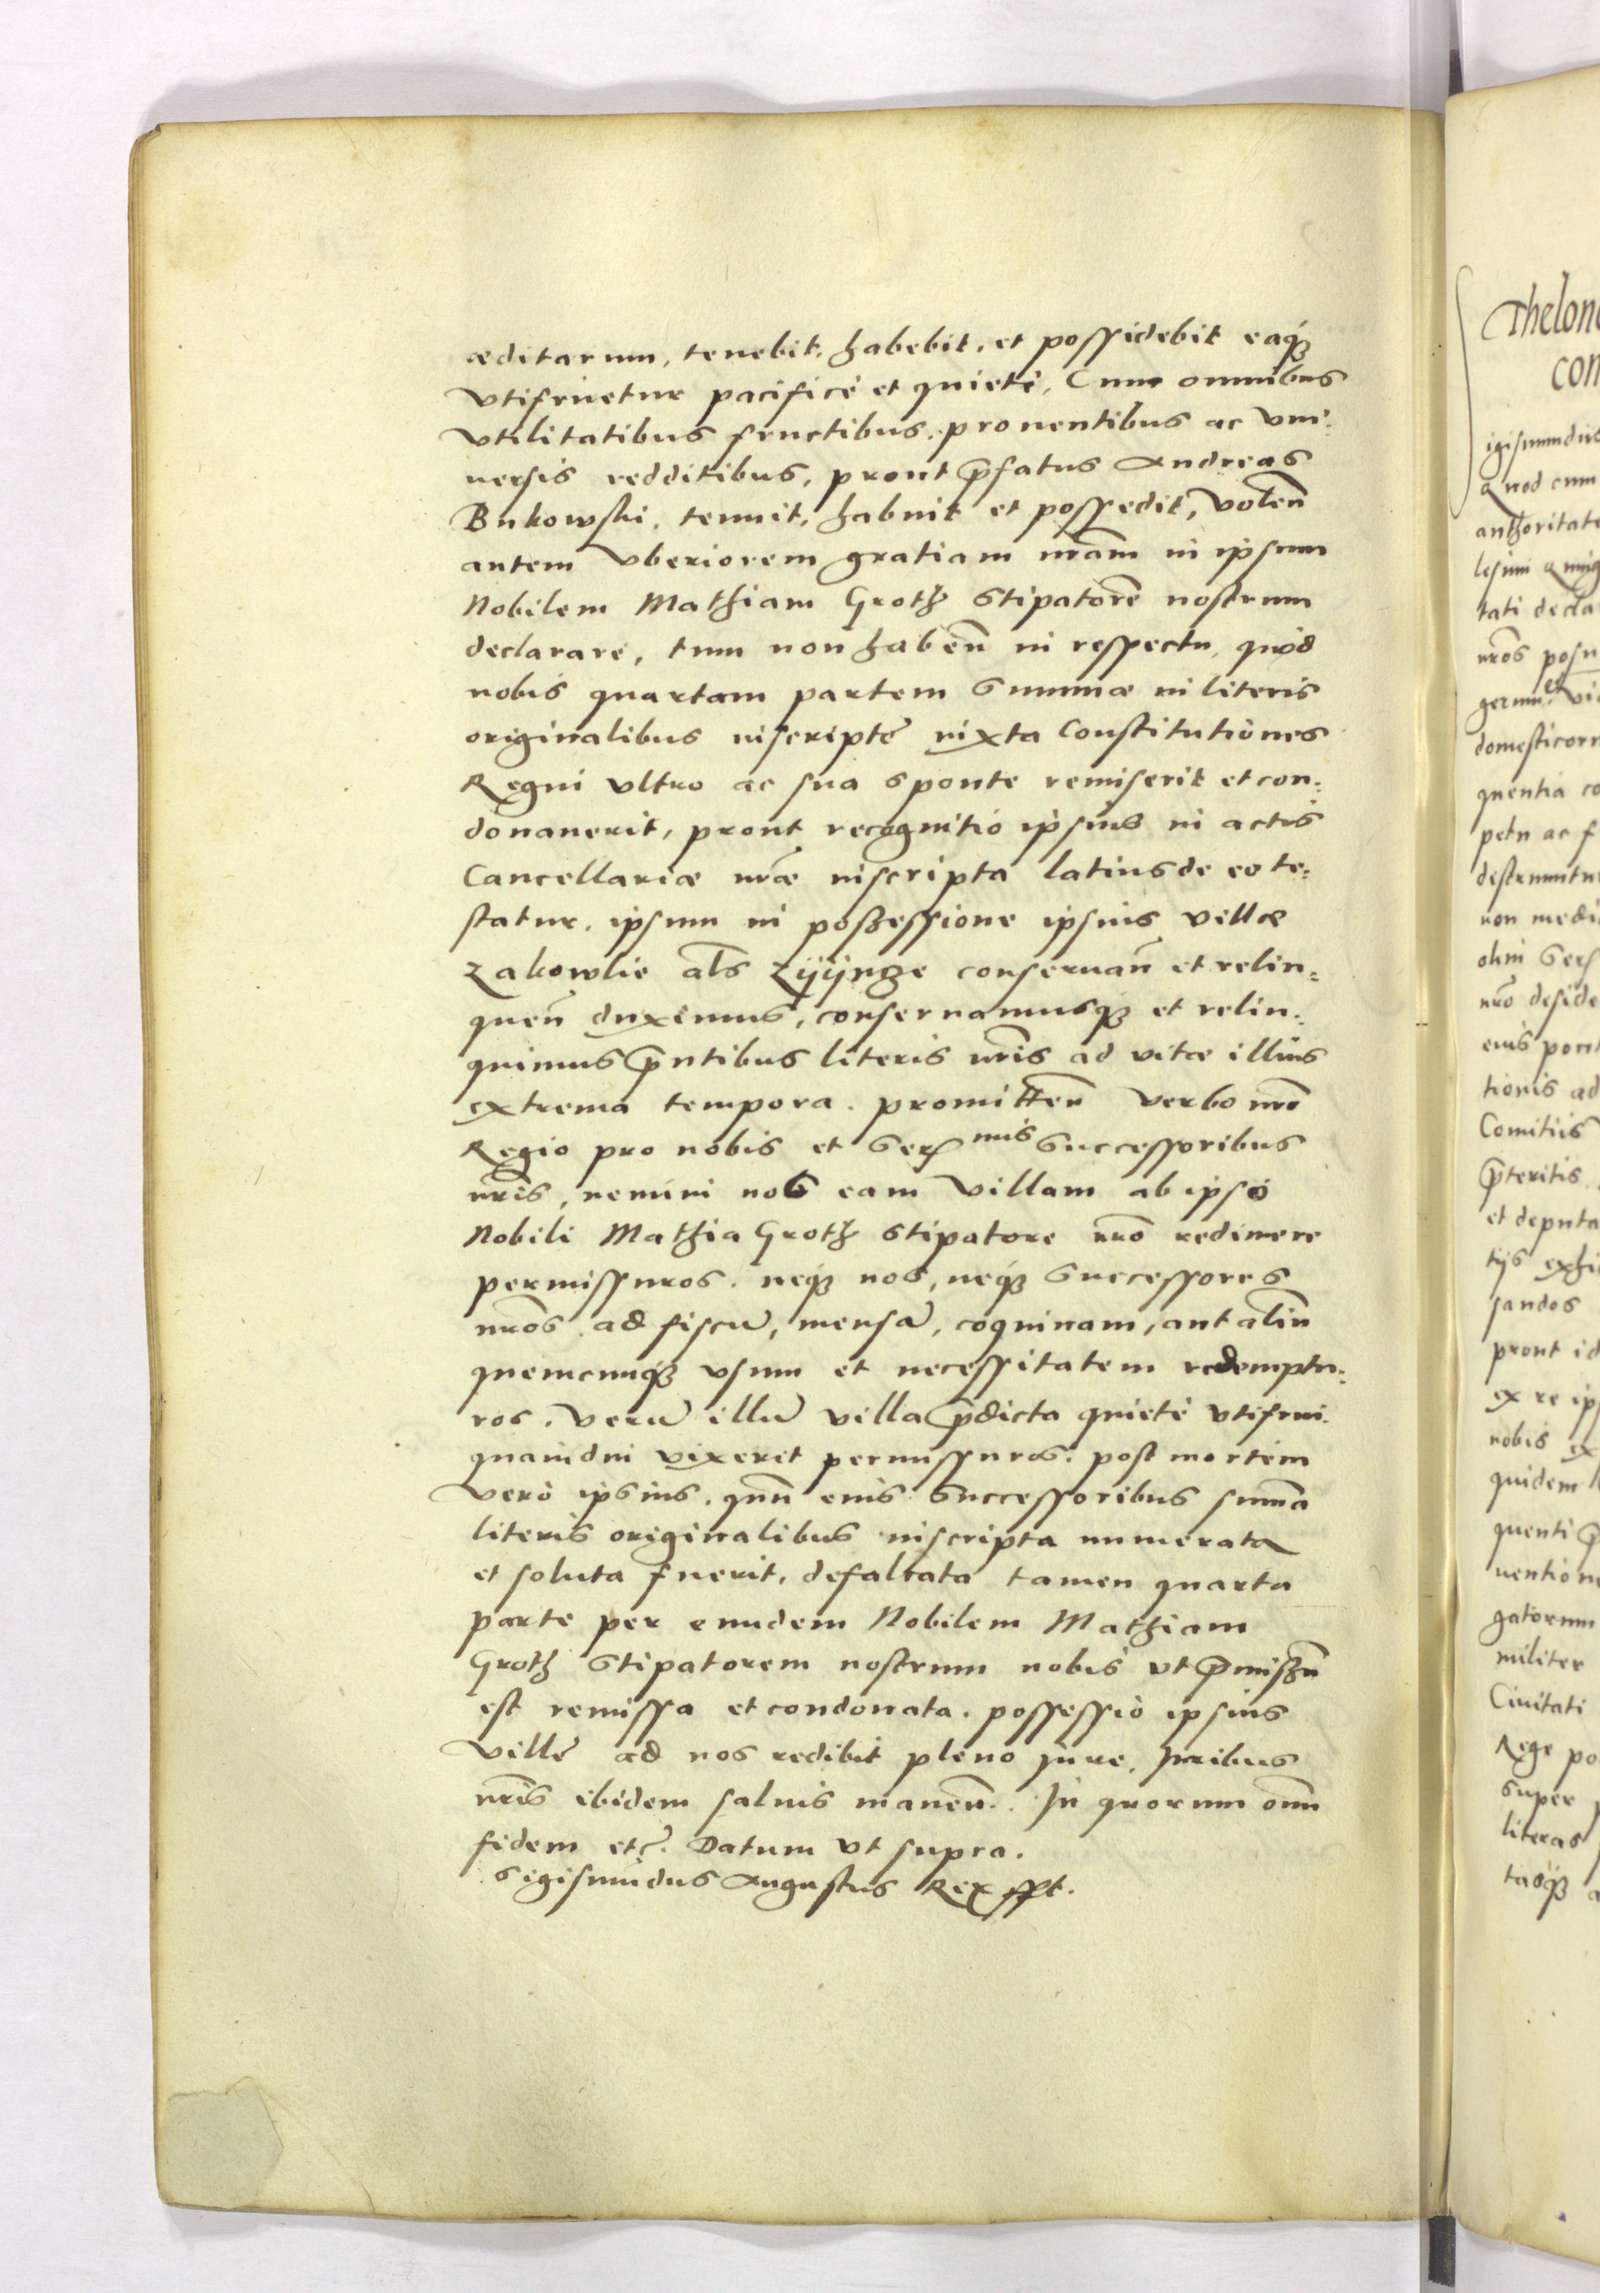 æditarum, tenebit, habebit, et possidebit eaq3
vtifruetur pacificè et quietè, Cum omnibus
vtilitatibus fructibus, prouentibus ac vni:
uersis redditibus, prout p̄fatus Andreas
Bukowski, tenuit, habuit et possedit, volen̄
autem vberiorem gratiam nr̄am in ipsum
Nobilem Mathiam Groth Stipatorē nostrum
declarare, tum non haben̄ in respectu, quòd
nobis quartam partem Summæ in literis
originalibus inscriptę iuxta Constitutiones
Regni vltro ac sua sponte remiserit et con:
donauerit, prout recognitio ipsius in actis
Cancellariæ nr̄æ inscripta latius de eo te:
statur, ipsum in possessione ipsius villæ
Zakowlie al̄s Zÿÿnge conseruan̄ et relin:
quen̄ duximus, conseruamusq3 et relin:
quimus p̄ntibus literis nr̄is ad vitæ illius
extrema tempora. promitten̄ verbo nr̄o
Regio pro nobis et Ser mis Successoribus
nr̄is, nemini nos eam villam ab ipso
Nobili Mathia Groth Stipatore nr̄o redimere
permissuros, neq3 nos, neq3 Successores
nr̄os, ad fiscū, mensā, coquinam, aut aliū
quemcumq3 vsum et necessitatem redemptu:
ros, verū illū villa p̄dicta quietè vtifrui
quamdiu vixerit permissuros. post mortem
verò ipsius, quū eius Successoribus sum̄a
literis originalibus inscripta numerata
et soluta fuerit, defalcata tamen quarta
parte per eundem Nobilem Mathiam
Groth Stipatorem nostrum nobis vt p̄missū
est remissa et condonata, possessio ipsius
villę ad nos redibit pleno iure, Juribus
nr̄is ibidem saluis manen̄. In quorum om̄
fidem etc. Datum vt supra.
Sigismūdus Augustus Rex sspt.
Thelon
con
igismundus
Quod cum
authoritate
tati decla
nr̄os posu
domesticor
quentia co
petu ac f
destruuntu
non medi
olim Ser
nr̄o deside
tionis ad
Comitiis
p̄teritis
et deputa
sandos
prout id
ex re ip
nobis ex
quidem l
quenti p̄
uentione
gatorum
militer
Ciuitati
Rege po
super
literas
tasq3 a